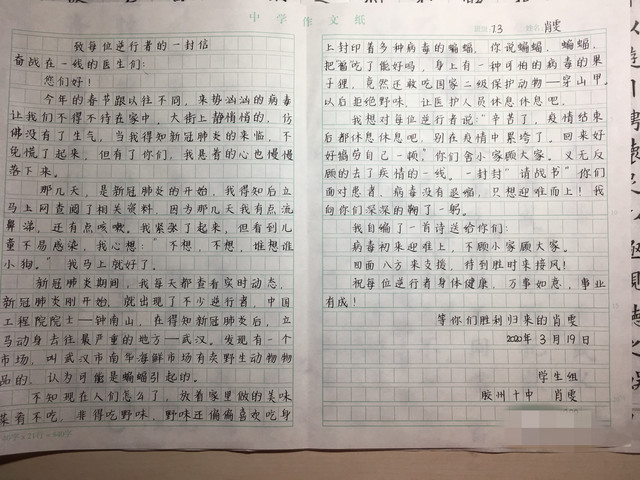 中学作文纸
13 肖雯
致每位逆行者的一封信
奋战在一线的医生们:
您们好!
今年的春节跟以往不同,来势汹汹的病毒
让我们不得不待在家中,大街上静悄悄的,仿
佛没有了生气,当我得知新冠肺炎的来临,不
免慌了起来,但有了你们,我悬着的心也慢慢
落下来。
那几天,是新冠肺炎的开始,我得知后立
马上网查阅了相关资料,因为那几天我有点流
鼻涕,还有点咳嗽。我紧张了起来,但看到儿
童不易感染,我心想:"不想,不想,谁想谁
小狗。"我马上就好了。
新冠肺炎期间,我每天都查看实时动态,
新冠肺炎刚开始,就出现了不少逆行者,中国
工程院院士—钟南山,在得知新冠肺炎后,立
马动身去往最严重的地方—武汉。发现有一个
市场,叫武汉市南华海鲜市场有卖野生动物物
品的,认为可能是蝙蝠引起的。
不知现在人们怎么了,放着家里做的美味
菜肴不吃,非得吃野味,野味还偏偏喜欢吃身
上封印着多种病毒的蝙蝠,你说蝙蝠,蝙蝠,
把"蝠"吃了能好吗,身上有一种可怕的病毒的果
子狸,竟然还敢吃国家二级保护动物—穿山甲。
以后拒绝野味,让医护人员休息休息吧。
我想对每位逆行者说:"辛苦了,疫情结束
后都休息休息吧,别在疫情中累垮了。回来好
好犒劳自己一顿,"你们舍小家顾大家。义无反
顾的去了疾情的一线。一封封"请战书"你们
面对患者,病毒没有退缩,只想迎难而上!我
向你们深深的鞠了一躬。
我自编了一首诗送给你们:
病毒初来迎难上,不顾小家顾大家。
四面八方来支援,待到胜时来接风!
祝每位逆行者身体健康,万事如意,事业
有成!
等你们胜利归来的肖雯
2020年3月19日
学生组
胶州十中 肖雯